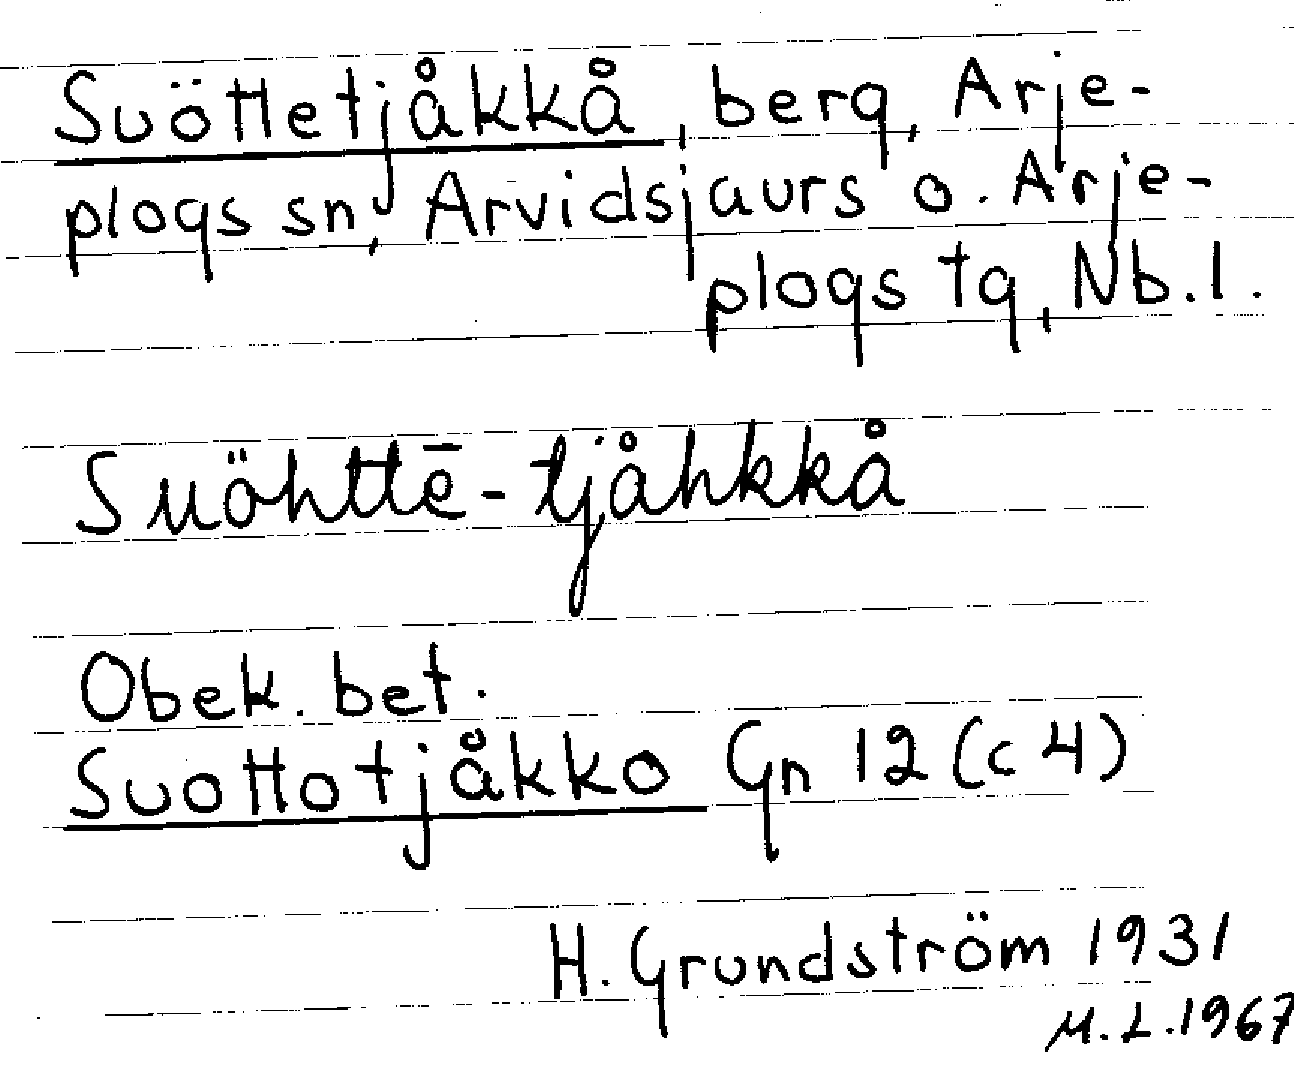 Suöttetjåkkå, berg, Arje-
plogs sn, Arvidsjaurs o. Arje-
plogs tg, Nb.l.
Suöhttē-tjåhkkå
Obek. bet.
Suottotjåkko Gn 12 (c 4)
H. Grundström 1931
M.L.1967